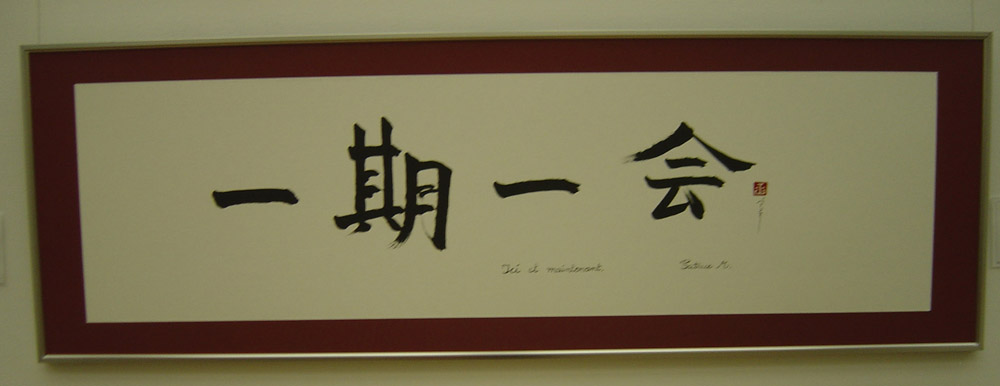 一期一会
Ici et maintenant
Patrice M.